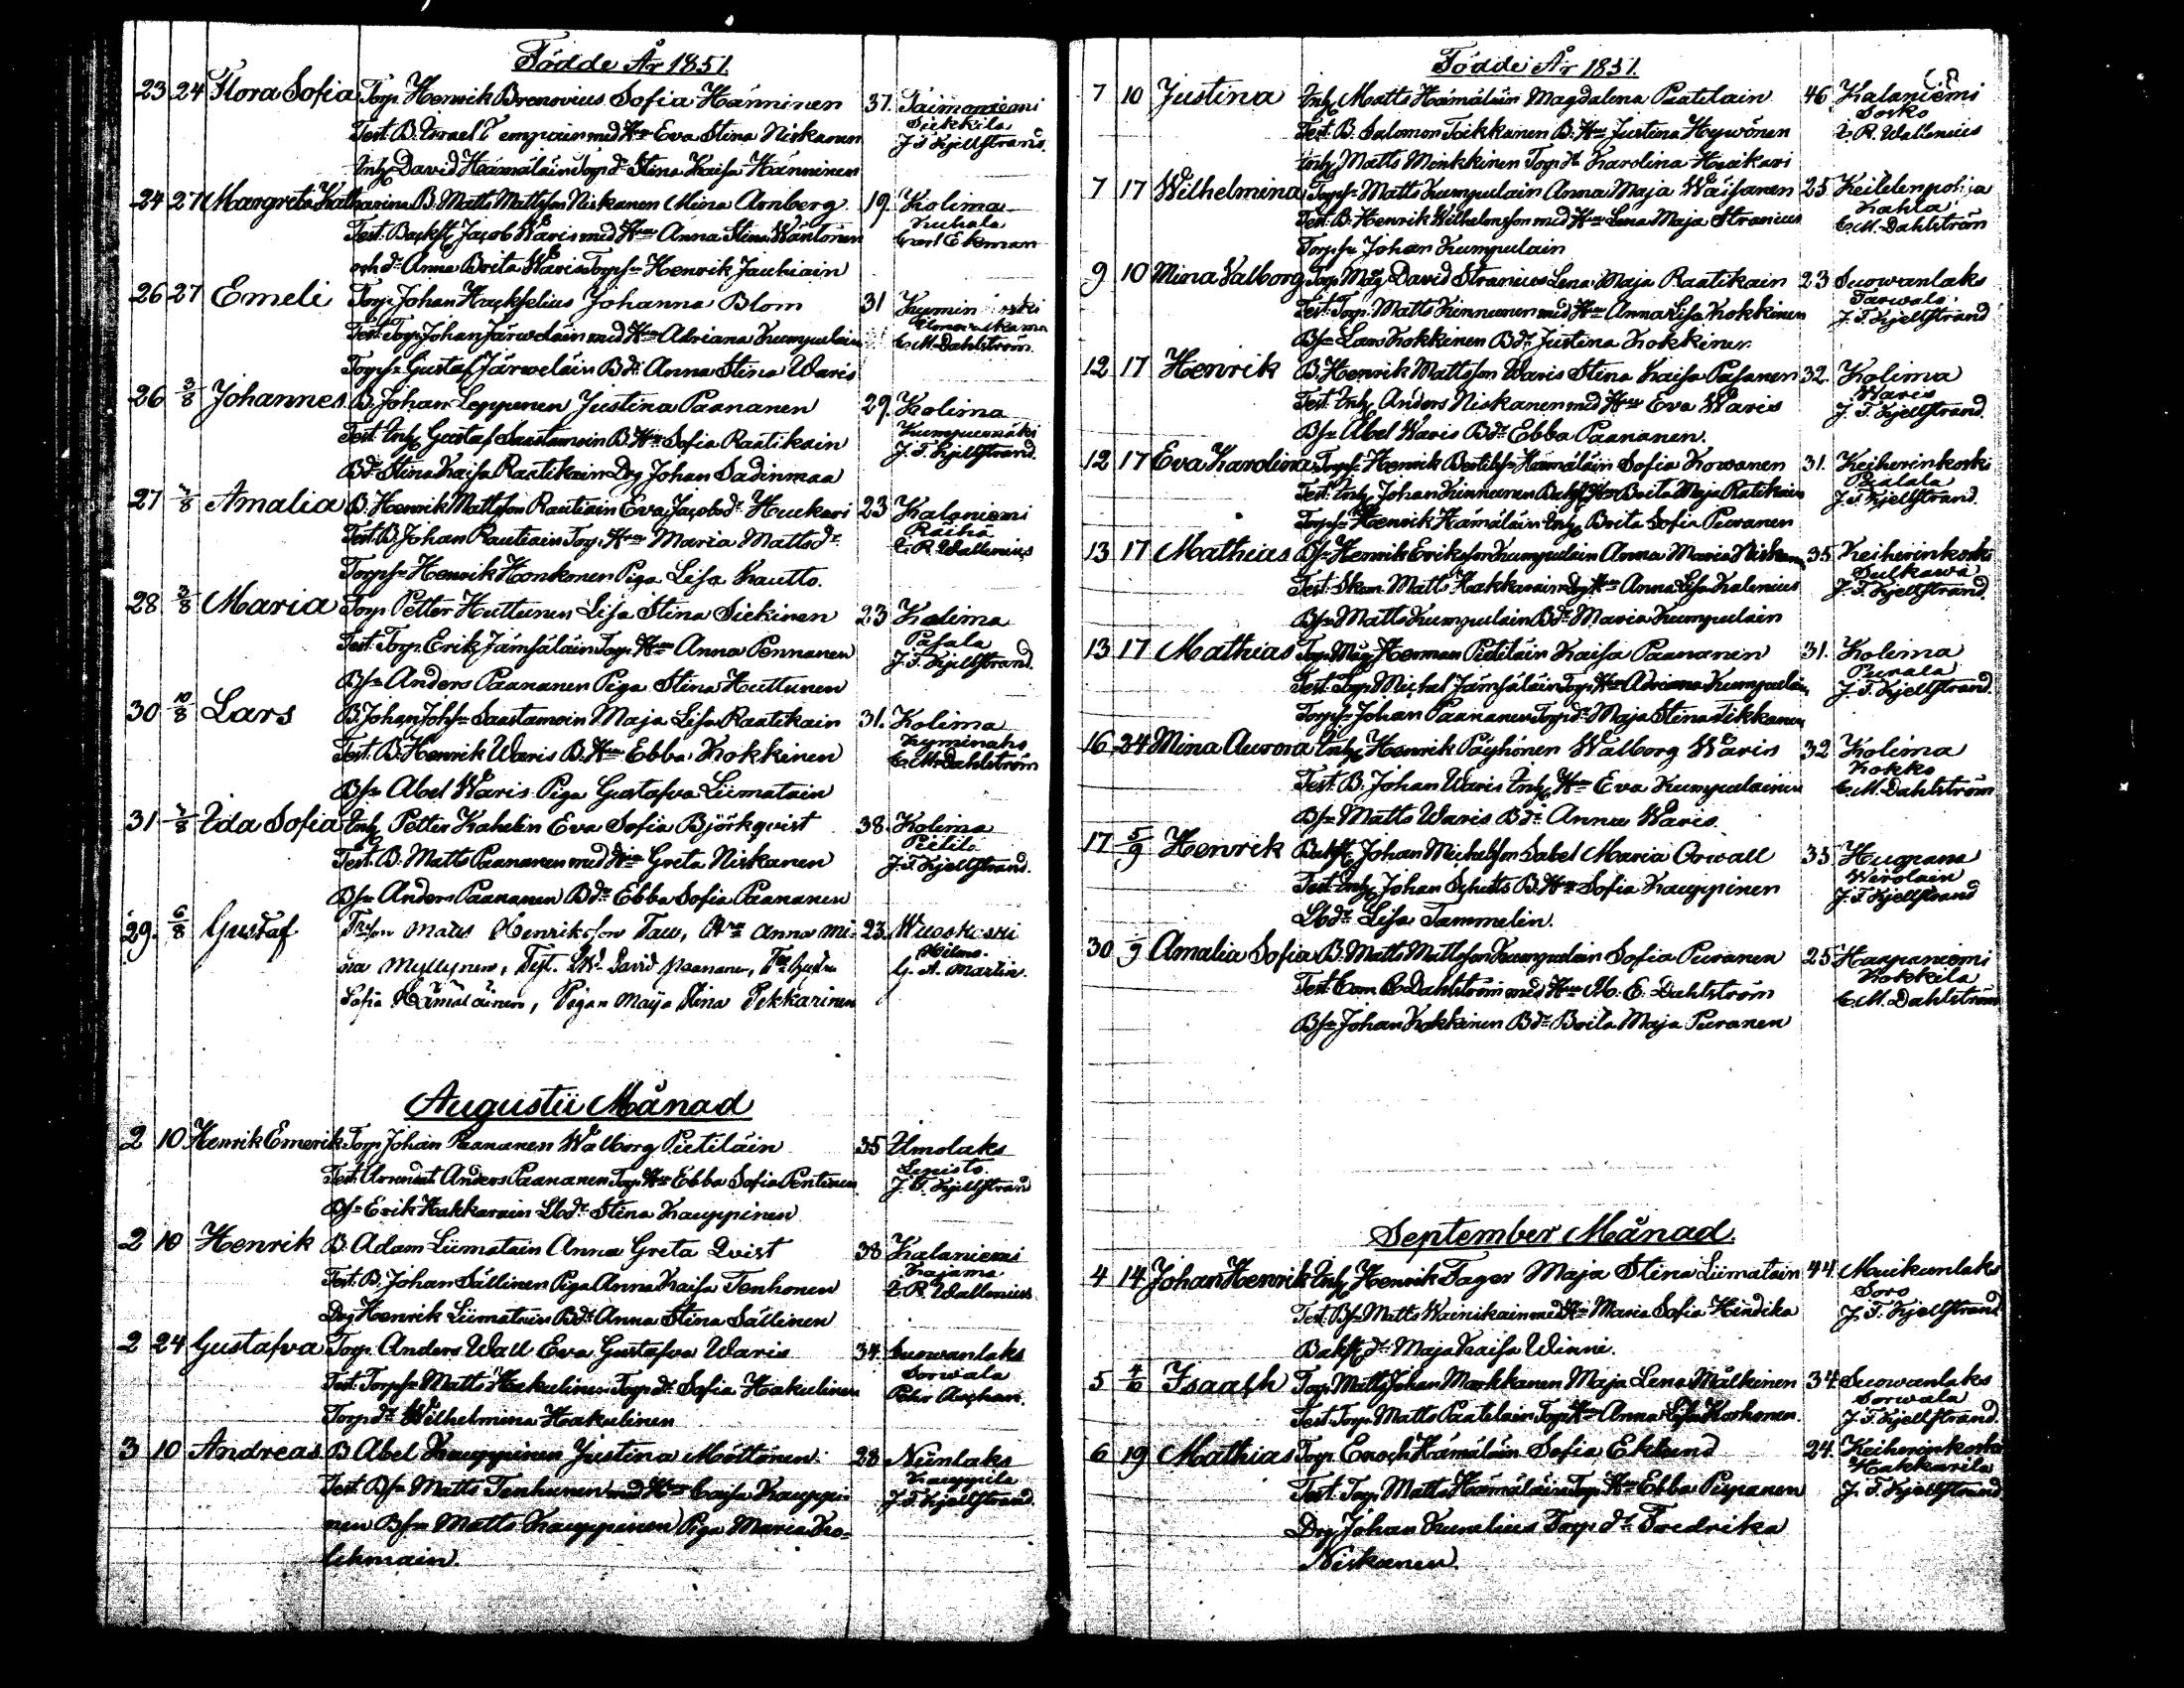 Födde År 1851.
23 24 Flora Sofia Torp. Henrik Brenovius Sofia Hänninen 37.
Test. B. Israel Tempain med Hu Eva Stina Niskanen Siekkila
Inh. David Hämäläin Torp.dr Stina Kaisa Hänninen J. F. Kjellstrand.
24 27 Margreta Katharina B. Matts Mattsson Niskanen Mina Arnberg 19. Kolima
Test. Backst. Jacob Waris med Hu Anna Stina Carl Ekman
och dr Anna Brita Waris Torps. Henrik Jauhiain
26 27 Emeli Torp. Johan Hackselius Johanna Blom 31
Test. Torp. Johan Järweläin med Hu Adriana Kumpulain C. M. Dahlström.
Torps. Gustaf Järweläin B.dr Anna Stina Waris
26 3/8 Johannes B. Johan Leppänen Justina Paananen 29. Kolima
Test. Inh. Gustaf Saastamoin B. Hu Sofia Raatikain Kumpumäki
B.dr Stina Kaisa Raatikain Drg Johan Sadinmaa J. F. Kjellstrand.
27 Amalia B. Henrik Mattsson Rautiain Eva Jacobsdr Huckari 23 Kalaniemi
Test. B. Johan Rautiain Torp. Hu Maria Mattsdr Räihä
Torps. Henrik Honkonen Piga Lisa Kautto. C. R. Wallenius
28 3/8 Maria Torp. Petter Huttunen Lisa Stina Siekinen 23 Kolima
Test. Torp. Erik Jämsäläin Torp. Hu Anna Pennanen Pasala
Bs. Anders Paananen Piga Stina Huttunen J. F. Kjellstrand.
30 10/8 Lars B. Johan Johss. Saastamoin Maja Lisa Raatikain 31. Kolima
Test. B. Henrik Waris B. Hu Ebba Kokkinen Kyminaho
Bs. Abel Waris Piga Gustafva Liimatain C. M. Dahlström
31 Ida Sofia Inh. Petter Kahelin Eva Sofia Björkqvist 38 Kolima
Test. B. Matts Paananen med Hu Greta Niskanen Pietilä
Bs. Anders Paananen B.dr Ebba Sofia Paananen J. F. Kjellstrand.
29. 6/8 Gustaf Matts Henriksson Anna Mi- 23. Wuoskoski
na Myllynen, Test. David Paananen, Hilmo.
Sofia Hämäläinen, Pigan Maija Stina Pekkarinen G. A. Martin
Augustii Månad
2 10 Henrik Emerik Torp. Johan Paananen Walborg Pietiläin 35 Ilmolaks
Test. Arrendat. Anders Paananen Torp. Hu Ebba Sofia Pentinen Lepistö.
Bs. Erik Hakkarain Lbdr Stina Kauppinen J. F. Kjellstrand
2 10 Henrik B. Adam Liimatain Anna Greta Qvist 38 Kalaniemi
Test. B. Johan Sällinen Piga Anna Kaisa Tenhonen Kajama
Drg Henrik Liimatain B.dr Anna Stina Sällinen C. R. Wallenius
2 24 Gustafva Torp. Anders Wall Eva Gustafva Waris 34. Suowanlaks
Test. Torps. Matts Hakulinen Torp.dr Sofia Hakulinen Sorwala
Torp.dr Wilhelmina Hakulinen Pehr
3 10 Andreas B. Abel Kauppinen Justina Möttönen 28 Niinlaks
Test. Bs. Matts Tenhunen med Hu Caisa Kauppi- Kauppila
nen Bs. Matts Kauppinen Piga Maria Ko- J. F. Kjellstrand.
lehmain.
Födde År 1851.
7 10 Justina Inh. Matts Hämäläin Magdalena Paatelain 46 Kalaniemi
Test. B. Salomon Toikkanen B. Hu Justina Heywönen Sosko
Inh. Matts Minkkinen Torp. Hu Karolina Haikari C. R. Wallenius
7 17 Wilhelmina Torps. Matts Kumpulain Anna Maja Wäisänen 25 Keitelenpohja
Test. B. Henrik Wilhelmsson med Hu Lena Maja Stranius Kahla
Torps. Johan Kumpulain C. M. Dahlström
9 10 Mina Valborg Torp. Måg David Stranius Lena Maja Raatikain 23 Suowanlaks
Test. Torp. Matts Kinnunen med Hu Anna Lisa Kokkinen
Bs. Lars Kokkinen B.dr Justina Kokkinen J. F. Kjellstrand
12 17 Henrik B. Henrik Mattsson Waris Stina Kaisa Pasanen 32. Kolima
Test. Inh. Anders Niskanen med Hu Eva Waris Waris
Bs. Abel Waris B.dr Ebba Paananen. J. F. Kjellstrand.
12 17 Eva Karolina Torps. Henrik Bertilss. Hämäläin Sofia Kowanen 31. Keiherinkoski
Test. Inh. Johan Kinnunen Bakst. Hu Brita Maja Ratikain
Torps. Henrik Hämäläin Inh. Brita Sofia Puranen J. F. Kjellstrand.
13 17 Mathias Bs. Henrik Eriksson Kumpulain Anna Maria 35 Keiherinkoski
Test. Skom. Matts Hakkarain Hu Anna Lisa Kalenius Sulkawa
Bs. Matts Kumpulain B.dr Maria Kumpulain J. F. Kjellstrand.
13 17 Mathias Torp. Måg Herman Pietiläin Kaisa Paananen 31. Kolima
Test. Torp. Michel Jämsäläin Torp. Hu Adriana Kumpulain Purala
Torps. Johan Paananen Torp.dr Maja Stina Tikkanen J. F. Kjellstrand.
16 24 Mina Aurora Inh. Henrik Pöyhönen Walborg Waris 32 Kolima
Test. B. Johan Waris Inh. Hu Eva Kumpulainen Kokko
Bs. Matts Waris B.dr Anna Waris. C. M. Dahlström
17 5/9 Henrik Bakst. Johan Michelsson Sabel Maria Orwall 33
Test. Inh. Johan Schutts B. Hu Sofia Kauppinen Wirolain
Lbdr Lisa Tammelin. J. F. Kjellstrand
30 Amalia Sofia B. Matts Mattsson Kumpulain Sofia Puranen 25 Haapaniemi
Test. C. Dahlström med Hu M. E. Dahlström Kokkila
Bs. Johan Kokkinen B.dr Brita Maja Puranen C. M. Dahlström
September Månad.
4 14 Johan Henrik Inh. Henrik Fager Maja Stina Liimatain 44. Muikunlaks
Test. Bs. Matts Wainikain med Hu Maria Sofia Hindika Soro
Bakst. dr Maja Kaisa Winni. J. F. Kjellstrand
5 Isaach Torp. Matts Johan Markkanen Maja Lena Mälkinen 34. Suowanlaks
Test. Torp. Matts Paatelain Torp. Hu Anna Lisa Korhonen. Sorwala
J. F. Kjellstrand.
6 19 Mathias Torp. Enoch Hämäläin Sofia Eklund 24. Keiherinkoski
Test. Torp. Matts Hämäläin Torp. Hu Ebba Piipanen Hakkarila
Drg Johan Kunelius Torp. dr Fredrika J. F. Kjellstrand
Niskanen.